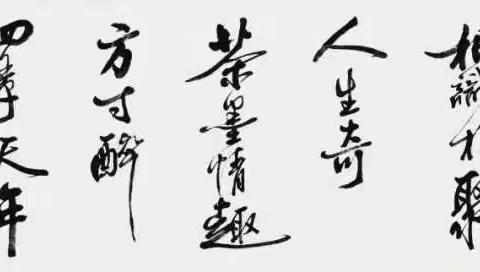 相識相聚
人生奇
茶墨情趣
方寸醉
天年